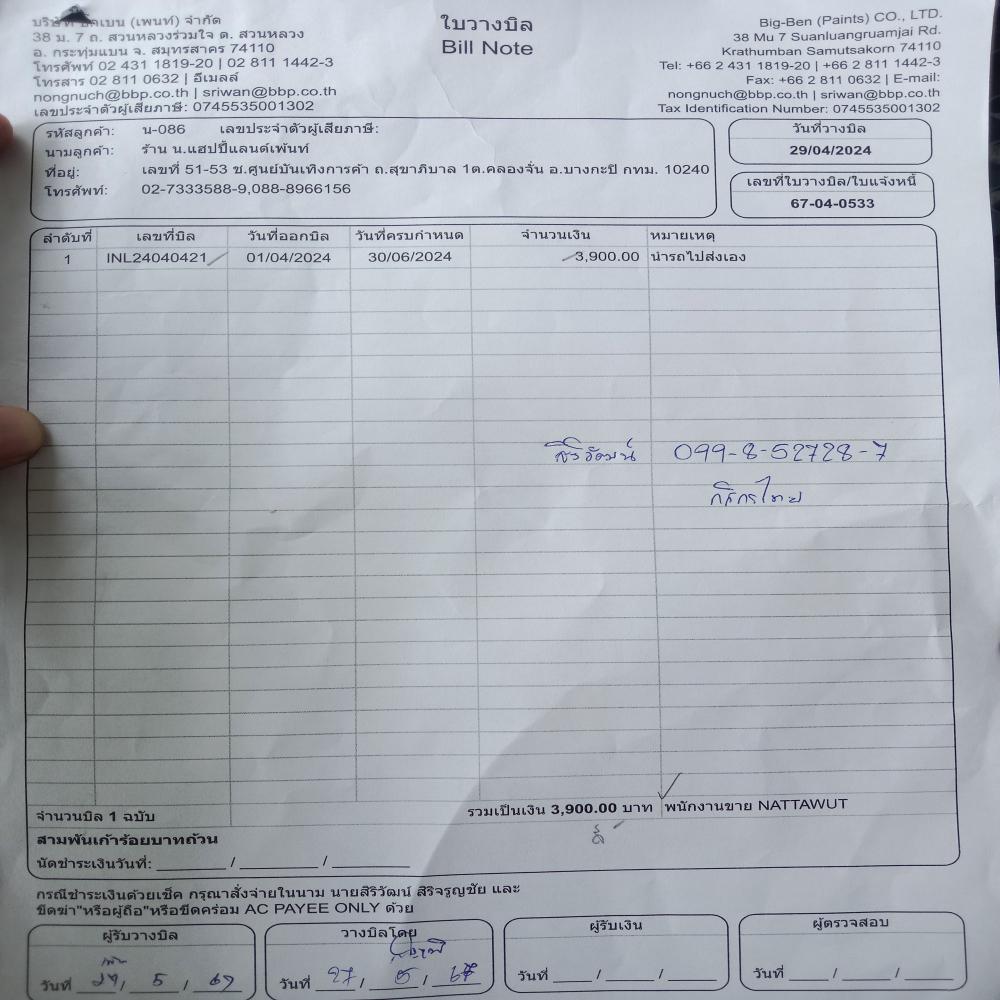 บริษัท บิ๊กเบน (เพนท์) จำกัด
38 ม. 7 ถ. สวนหลวงร่วมใจ ต. สวนหลวง
อ. กระทุ่มแบน จ. สมุทรสาคร 74110
โทรศัพท์ 02 431 1819-20 | 02 811 1442-3
โทรสาร 02 811 0632 | อีเมลล์
nongnuch@bbp.co.th | sriwan@bbp.co.th
เลขประจำตัวผู้เสียภาษี: 0745535001302
ใบวางบิล
Bill Note
Big-Ben (Paints) CO., LTD.
38 Mu 7 Suanluangruamjai Rd.
Krathumban Samutsakorn 74110
Tel: +66 2 431 1819-20 | +66 2 811 1442-3
Fax: +66 2 811 0632 | E-mail:
nongnuch@bbp.co.th | sriwan@bbp.co.th
Tax Identification Number: 0745535001302
รหัสลูกค้า: น-086 เลขประจำตัวผู้เสียภาษี:
นามลูกค้า: ร้าน น.แฮปปี้แลนด์เพ้นท์
ที่อยู่: เลขที่ 51-53 ซ.ศูนย์บันเทิงการค้า ถ.สุขาภิบาล 1ต.คลองจั่น อ.บางกะปิ กทม. 10240
โทรศัพท์: 02-7333588-9,088-8966156
วันที่วางบิล
29/04/2024
เลขที่ใบวางบิล/ใบแจ้งหนี้
67-04-0533
ลำดับที่ เลขที่บิล วันที่ออกบิล วันที่ครบกำหนด จำนวนเงิน หมายเหตุ
1 INL24040421 01/04/2024 30/06/2024 3,900.00 นำรถไปส่งเอง
สิริวัฒน์ 099-8-52728-7
กสิกรไทย
จำนวนบิล 1 ฉบับ รวมเป็นเงิน 3,900.00 บาท พนักงานขาย NATTAWUT
สามพันเก้าร้อยบาทถ้วน
นัดชำระเงินวันที่: ____ / ____ / ____
กรณีชำระเงินด้วยเช็ค กรุณาสั่งจ่ายในนาม นายสิริวัฒน์ สิริจรูญชัย และ
ขีดฆ่า"หรือผู้ถือ"หรือขีดคร่อม AC PAYEE ONLY ด้วย
ผู้รับวางบิล วางบิลโดย ผู้รับเงิน ผู้ตรวจสอบ
วันที่ / 5 / 67 วันที่ 27 / 5 / 67 วันที่ ___ / ___ / ___ วันที่ ___ / ___ / ___